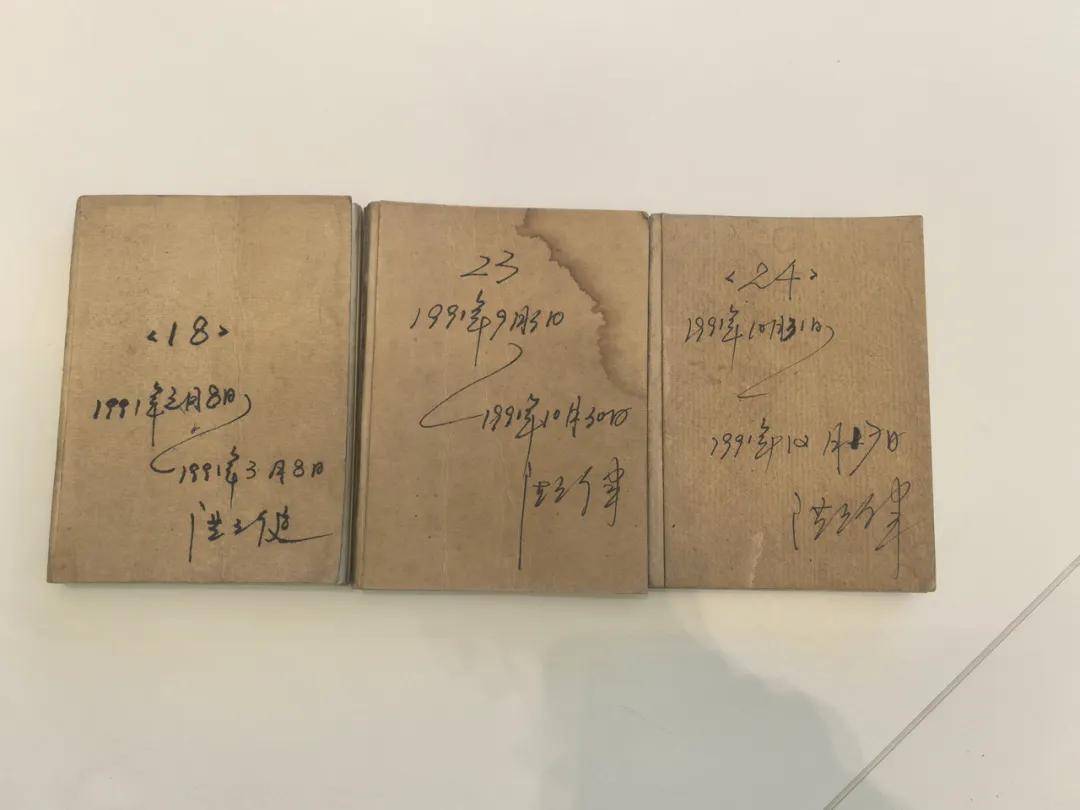 <18>
1991年2月8日
1991年3月8日
洪立健
23
1991年9月3日
1991年10月30日
洪立健
<24>
1991年10月31日
1991年12月13日
洪立健